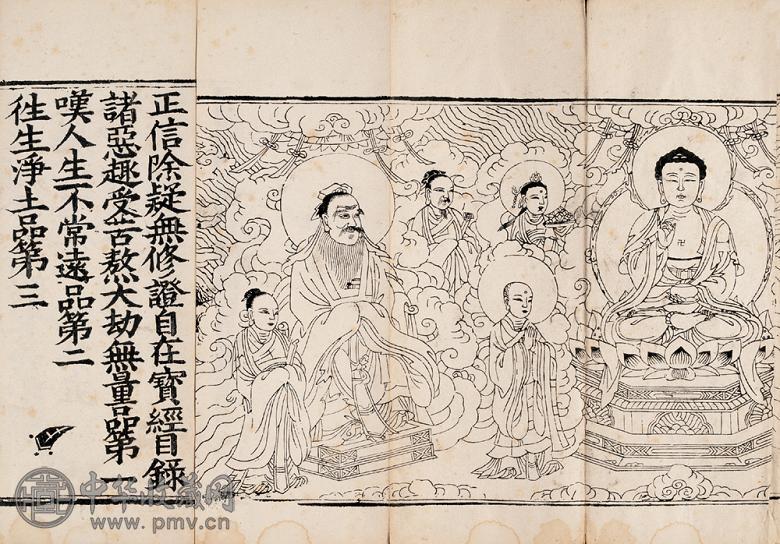 正信除疑無修證自在寶經目錄
諸惡趣受苦熬大劫無量品第一
嘆人生不常遠品第二
徃生淨土品第三
卍
中华收藏网
www.pmv.cn